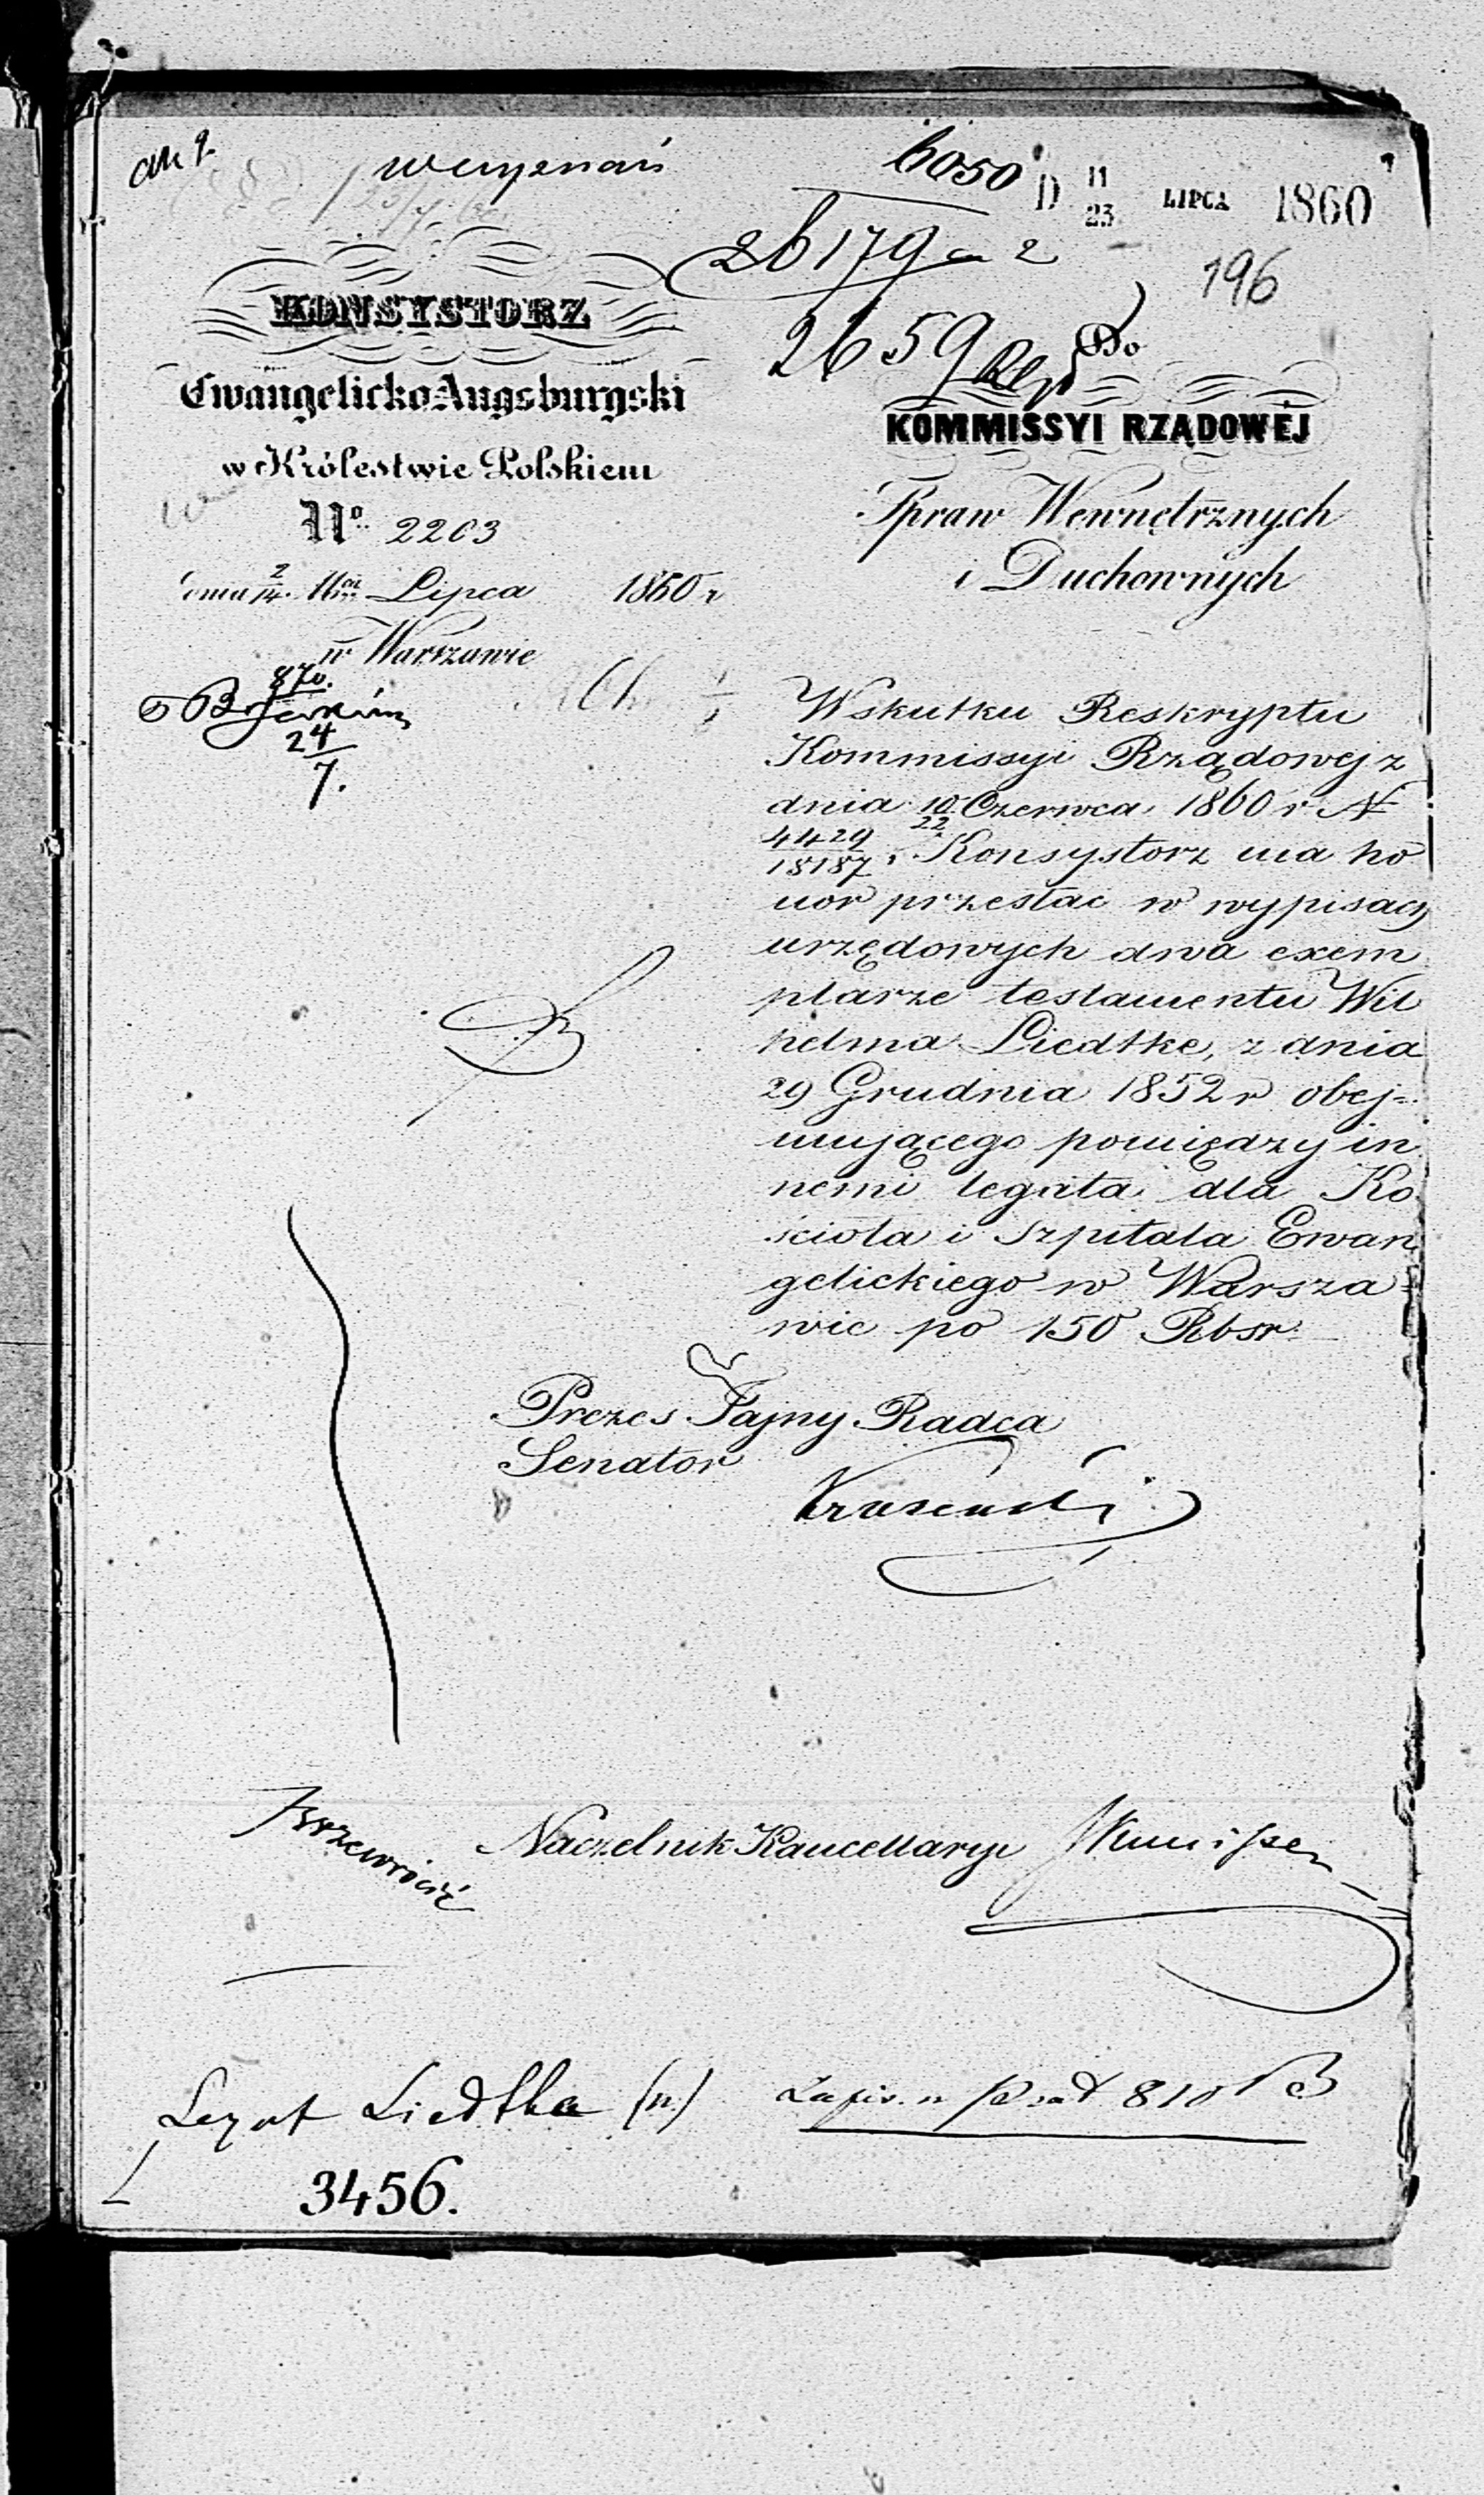 wyznań
6050 D 11/23 LIPCA 1860
26179 a 2
196
2659
KONSYSTORZ
Ewangelicko Augsburgski
w Królestwie Polskiem
No 2203
dnia 2/14 Lipca 1860 r
w Warszawie
870.
24
7.
Do
KOMMISSYI RZĄDOWÉJ
Spraw Wewnętrznych
i Duchownych
Wskutku Reskryptu
Kommissyi Rządowej z
dnia 10/22 Czerwca 1860 r N
4429/18187, Konsystorz ma ho
nor przesłać w wypisach
urzędowych dwa exem
plarze testamentu Wil
helma Liedtke, z dnia
29 Grudnia 1852 r obej=
mującego pomiędzy in
nemi legata dla Ko
ścioła i Szpitala Ewan
gelickiego w Warsza=
wie po 150 Rbsr.
Prezes Tajny Radca
Senator
Kruseński
Przewrócić
Naczelnik Kancellaryi
Legat Liedtke (n)
810 B
3456.